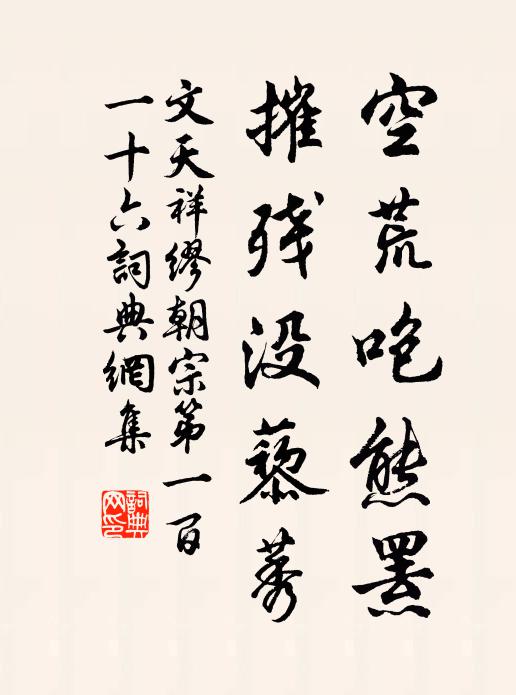 空荒咆熊罴
摧残没藜莠
文天祥繆朝宗第一百
一十六詞典網集
詞典网印